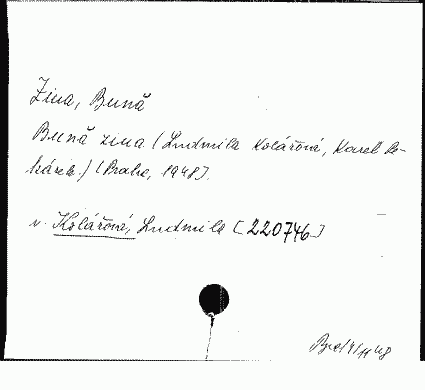 Ziua, Bună
Bună ziua (Ludmila Kolářová, Karel Pe-
kárek.) (Praha, 1948).
v. Kolářová, Ludmila [220746]